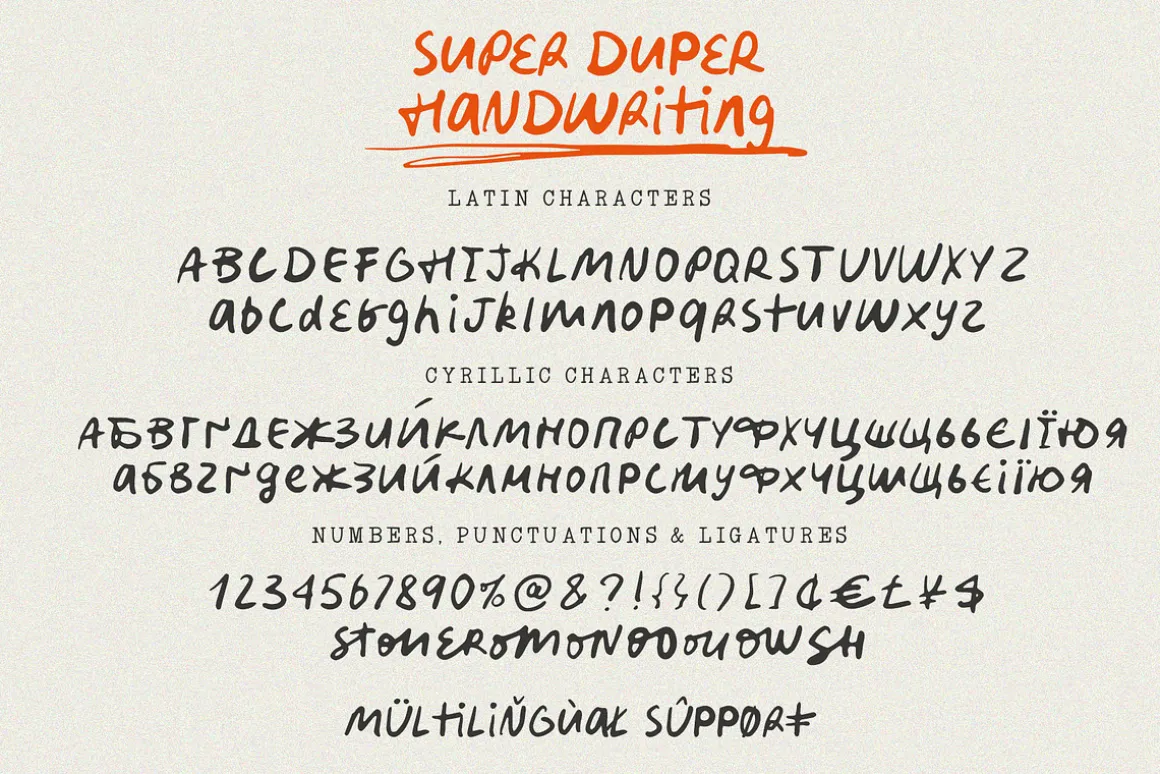 SUPER DUPER
HANDWRiting
LATIN CHARACTERS
ABCDEFGHIJKLMNOPQRSTUVWXYZ
abcdefghijklmnopqrstuvwxyz
CYRILLIC CHARACTERS
АБВГҐДЕЖЗИЙКЛМНОПРСТУФХЧЦШЩЬЬЄІЇЮЯ
абвгґдежзийклмнопрстуфхчцшщьєіїюя
NUMBERS, PUNCTUATIONS & LIGATURES
1234567890%@&?!{}()[]¢€£¥$
MÜLtiLiŇGùaŁ SÛPPØRŦ